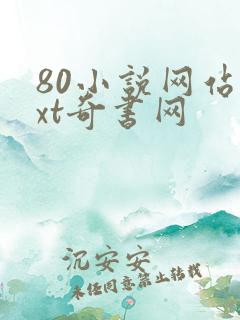 80小说网佔
xt奇书网
沉安安
未经同意禁止转载